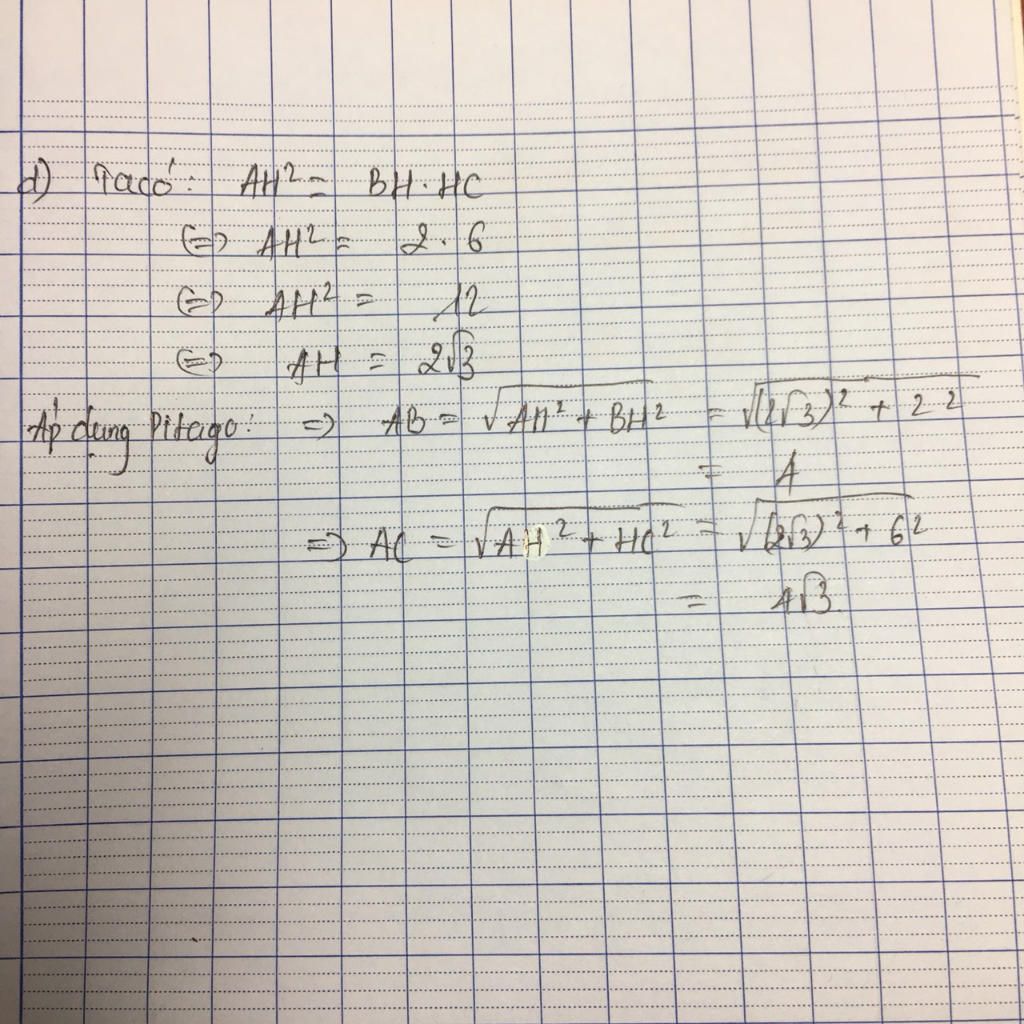 d) Ta có: AH² = BH.HC
(=) AH² = 2.6
(=) AH² = 12
(=) AH = 2√3
Áp dụng Pitago: => AB = √AH² + BH² = √(2√3)² + 2²
= 4
=> AC = √AH² + HC² = √(2√3)² + 6²
= 4√3